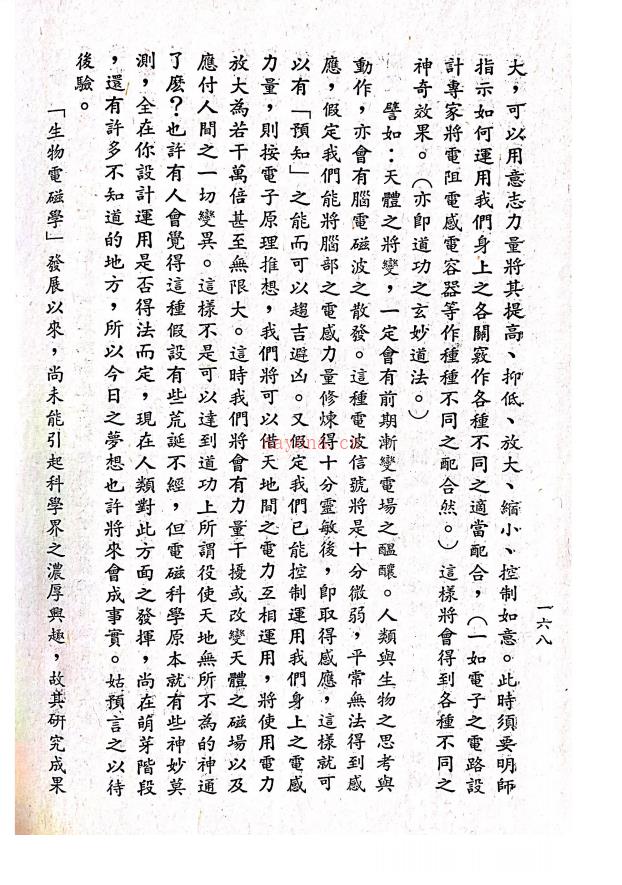 大，可以用意志力量將其提高、抑低、放大、縮小、控制如意。此時須要明師
指示如何運用我們身上之各關竅作各種不同之適當配合，（一如電子之電路設
計專家將電阻電感電容器等作種種不同之配合然。）這樣將會得到各種不同之
神奇效果。（亦即道功之玄妙道法。）
譬如：天體之將變，一定會有前期漸變電場之醞釀。人類與生物之思考與
動作，亦會有腦電磁波之散發。這種電波信號將是十分微弱，平常無法得到感
應，假定我們能將腦部之電感力量修煉得十分靈敏後，即取得感應，這樣就可
以有「預知」之能而可以趨吉避凶。又假定我們已能控制運用我們身上之電感
力量，則按電子原理推想，我們將可以借天地間之電力互相運用，將使用電力
放大為若干萬倍甚至無限大。這時我們將會有力量干擾或改變天體之磁場以及
應付人間之一切變異。這樣不是可以達到道功上所謂役使天地無所不為的神通
了麽？也許有人會覺得這種假設有些荒誕不經，但電磁科學原本就有些神妙莫
測，全在你設計運用是否得法而定，現在人類對此方面之發揮，尚在萌芽階段
，還有許多不知道的地方，所以今日之夢想也許將來會成事實。姑預言之以待
後驗。
「生物電磁學」發展以來，尚未能引起科學界之濃厚興趣，故其研究成果
一六八